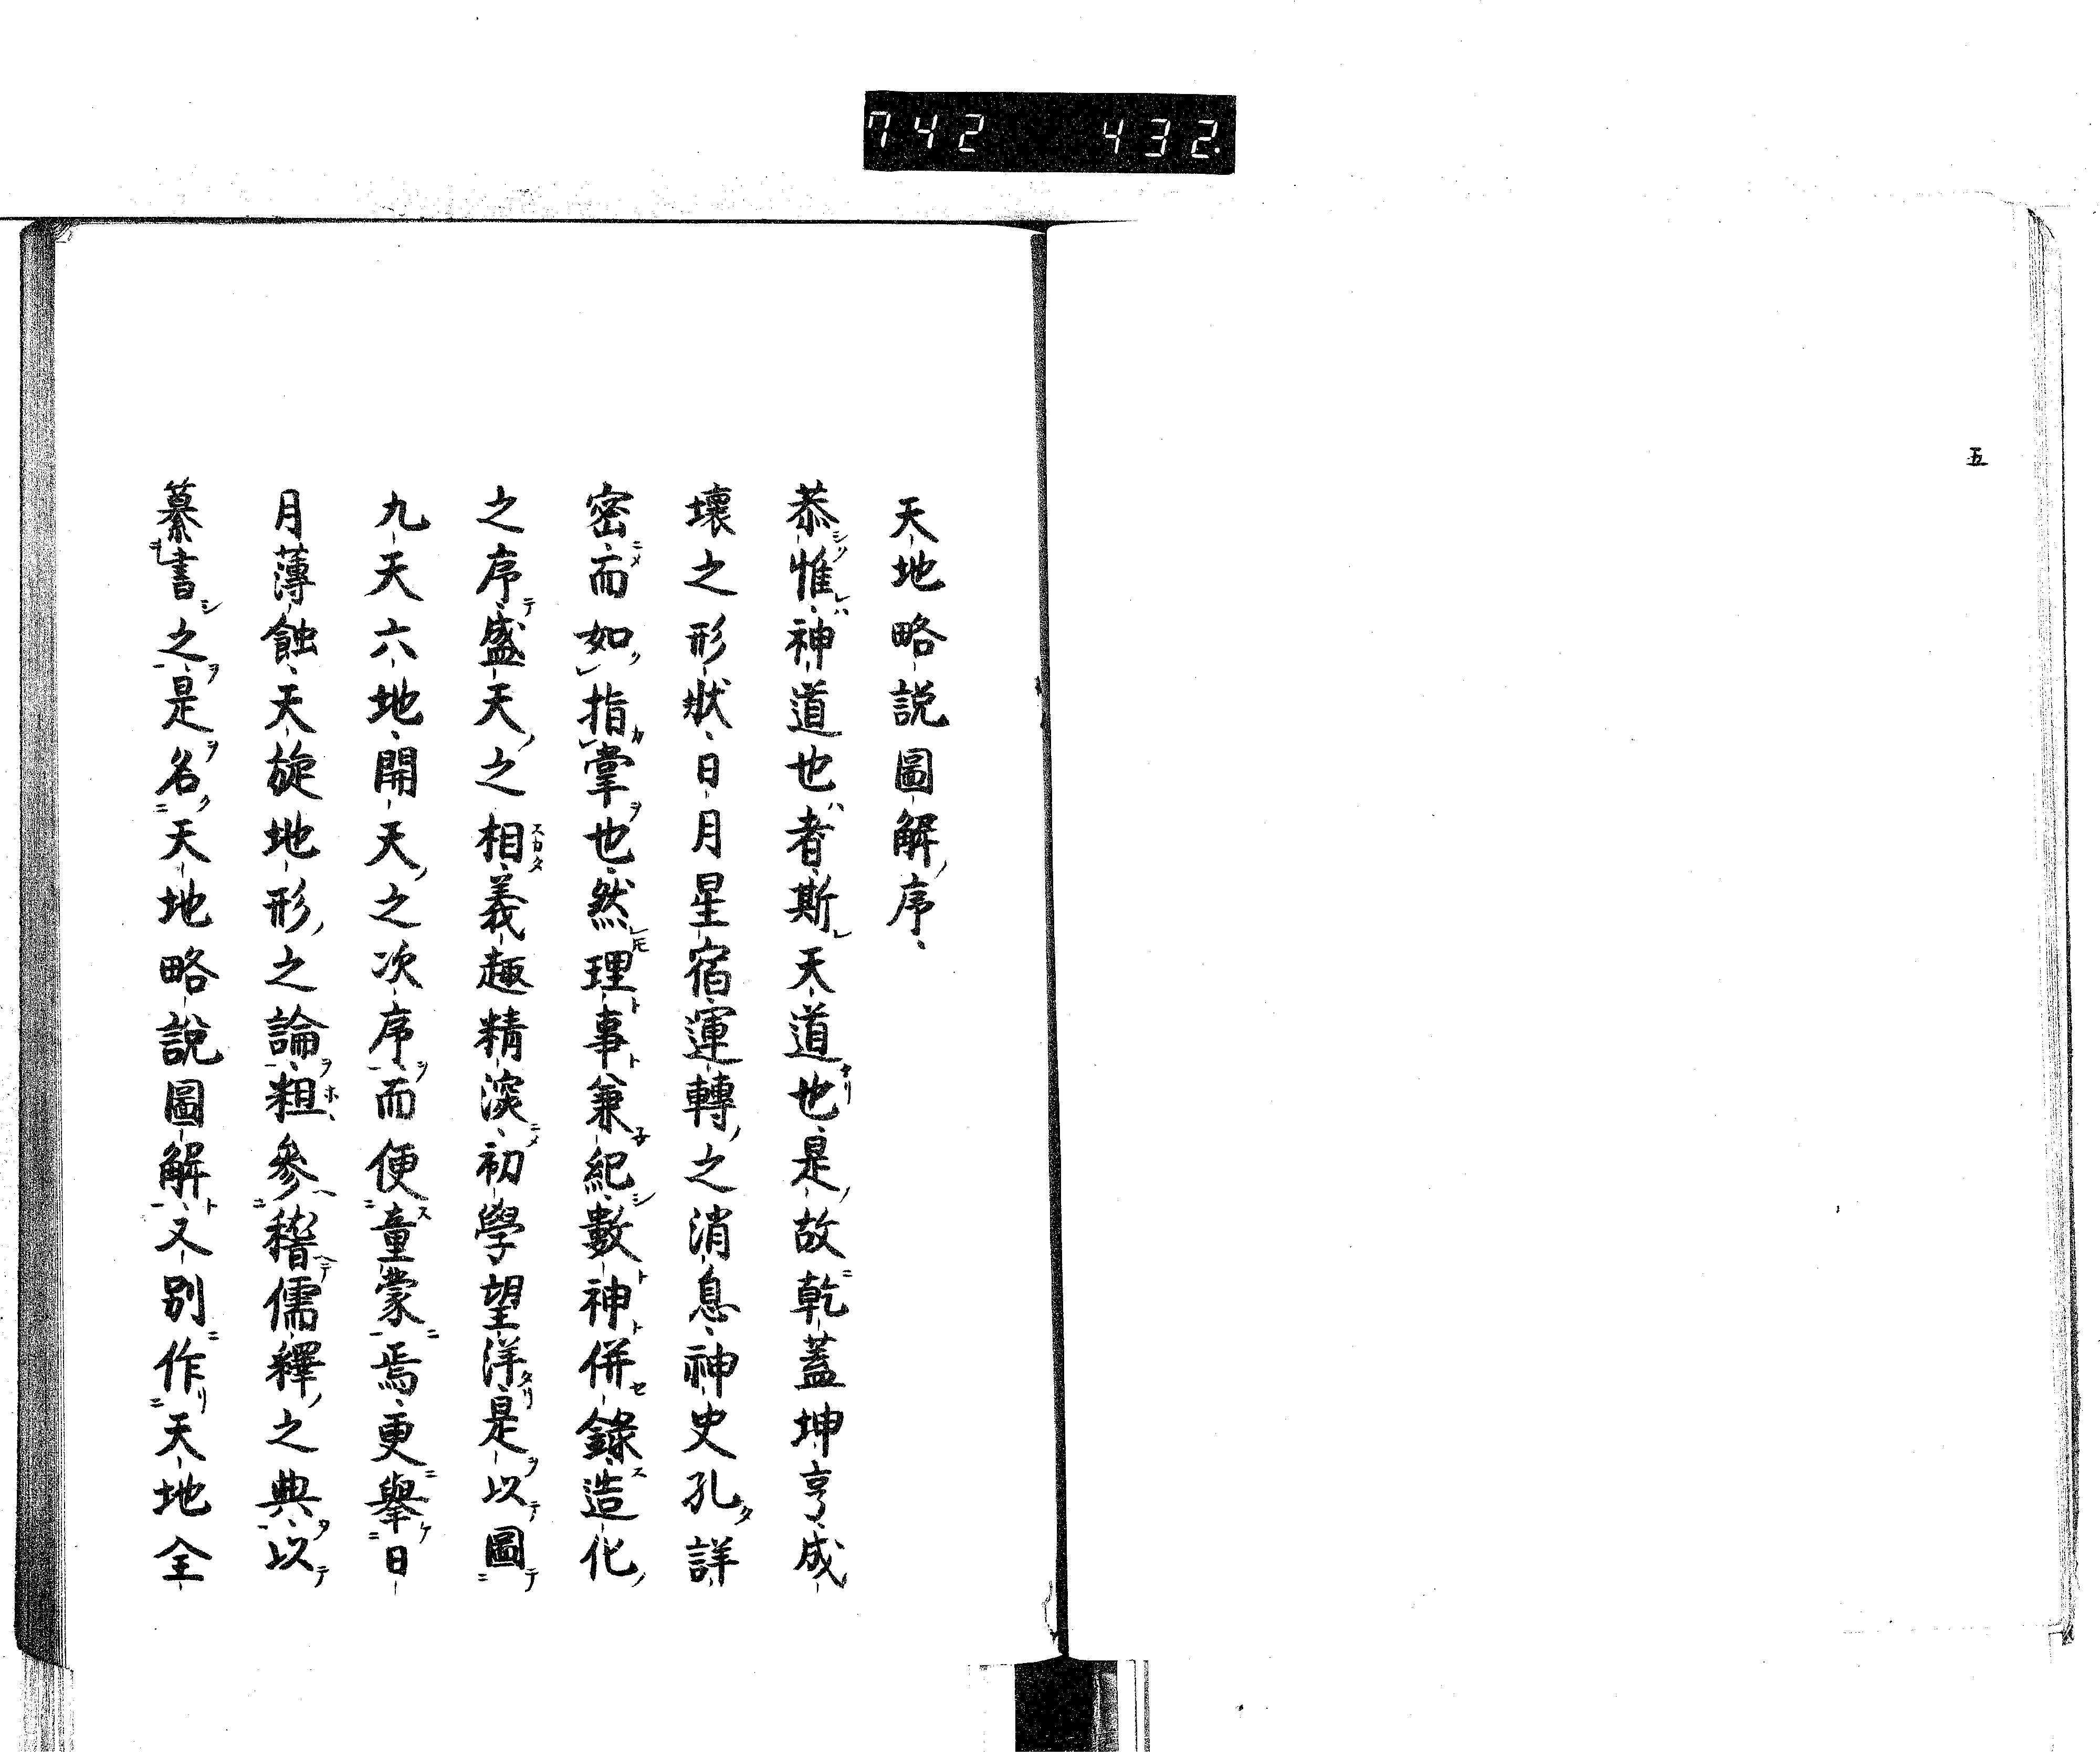 742 432
五
天地略説圖解ノ序
恭惟神道也者斯天道也是故乾蓋坤亨成
壞之形狀日月星宿運轉之消息神史孔詳
密而如指掌也然理事兼紀數神併錄造化
之序盛天之相義趣精深初學望洋是以圖
九天六地開天之次序而便童蒙焉更擧日
月薄蝕天旋地形之論粗參稽儒釋之典以
纂書之是名天地略說圖解又別作天地全